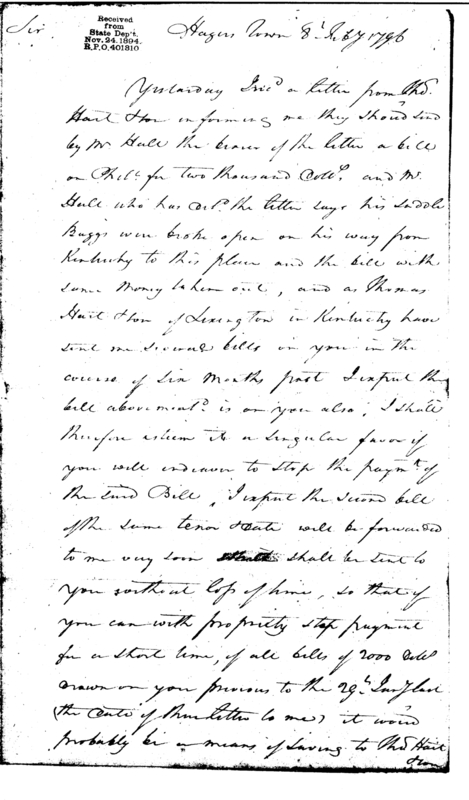 Received
from
State Dep't.
Nov. 24. 1894.
R.P.O. 401810
Sir
Hagers Town 8th Feby 1796
Yesterday I recd a letter from Thos.
Hart & Son informing me they should send
by Mr Hull the bearer of the letter a bill
on Phila for two thousand Dolls. and Mr.
Hull who has deld. the letter says his Saddle
Baggs were broke open on his way from
Kentucky to this place and the bill with
some Money taken out, and as Thomas
Hart & Son of Lexington in Kentucky have
sent me several bills on you in the
course of Six Months past I expect the
bill above mentd. is on you also, I shall
therefore esteem it a singular favor if
you will endeavor to stop the paymt. of
the said Bill, I expect the second bill
of the same tenor & date will be forwarded
to me very soon shall be sent to
you without loss of time, so that if
you can with propriety stop payment
for a short time, of all bills of 2000 Dolls
drawn on you previous to the 29th Jany last
(the date of their letter to me) it would
probably be a means of saving to Thos Hart
& Son